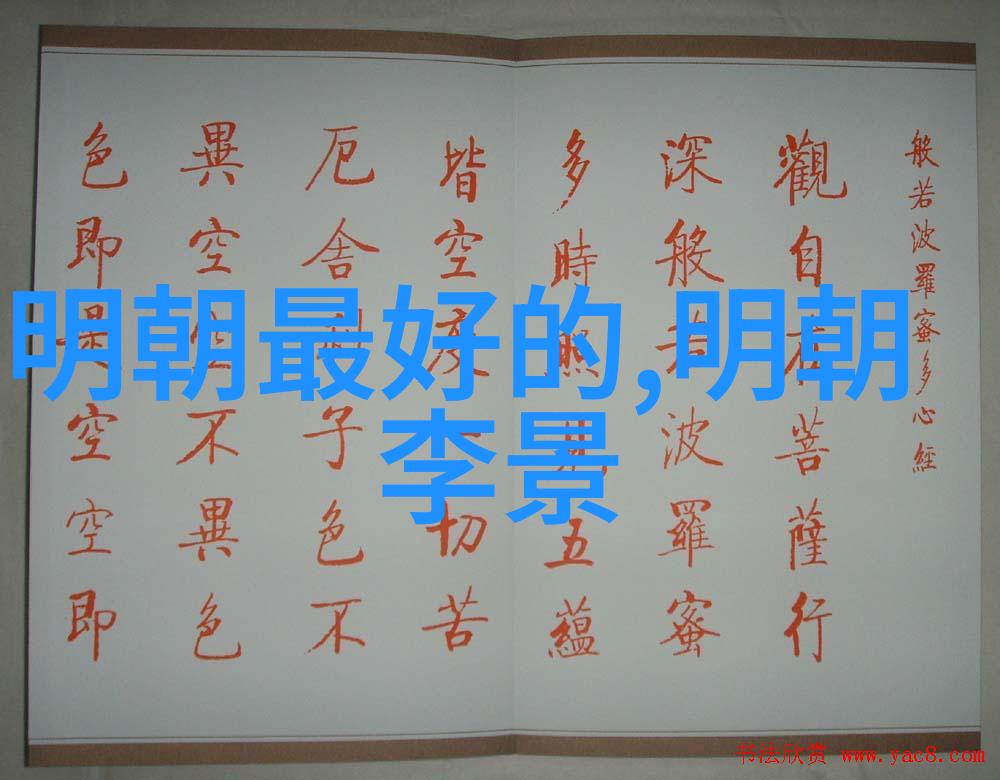 般若波羅蜜多心經
觀自在菩薩行
深般若波羅蜜
多時照五蘊
皆空度切苦
厄舍利子色不
異空空不異色
色即是空空即
明朝最好的,明朝
李景
书法欣赏 www.yac8.com